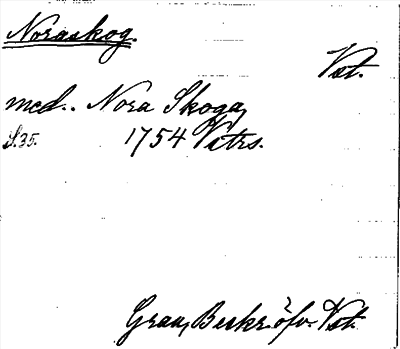 Noraskog.
Vst.
med. Nora Skoga,
S.35. 1754 Vstrs.
Grau, Beskr. öfv. Vst.